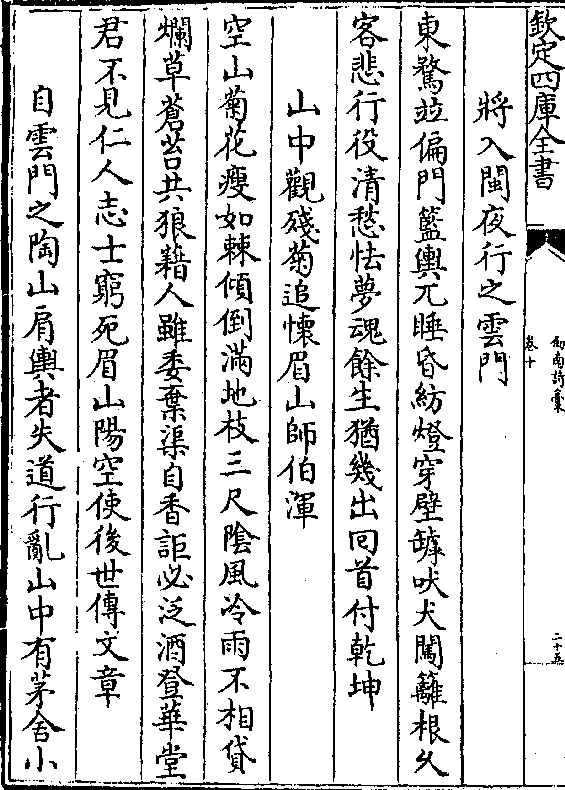 欽定四庫全書
劍南詩稾
卷十
二十五
將入閩夜行之雲門
東騖竝偏門籃輿兀睡昏紡燈穿壁罅吠犬闖籬根久
客悲行役清愁怯夢魂餘生猶幾出回首付乾坤
山中觀殘菊追懷眉山師伯渾
空山菊花瘦如棘傾倒滿地枝三尺陰風冷雨不相貸
爛草蒼苔共狼籍人雖委棄渠自香詎必泛酒登華堂
君不見仁人志士窮死眉山陽空使後世傳文章
自雲門之陶山肩輿者失道行亂山中有茅舍小